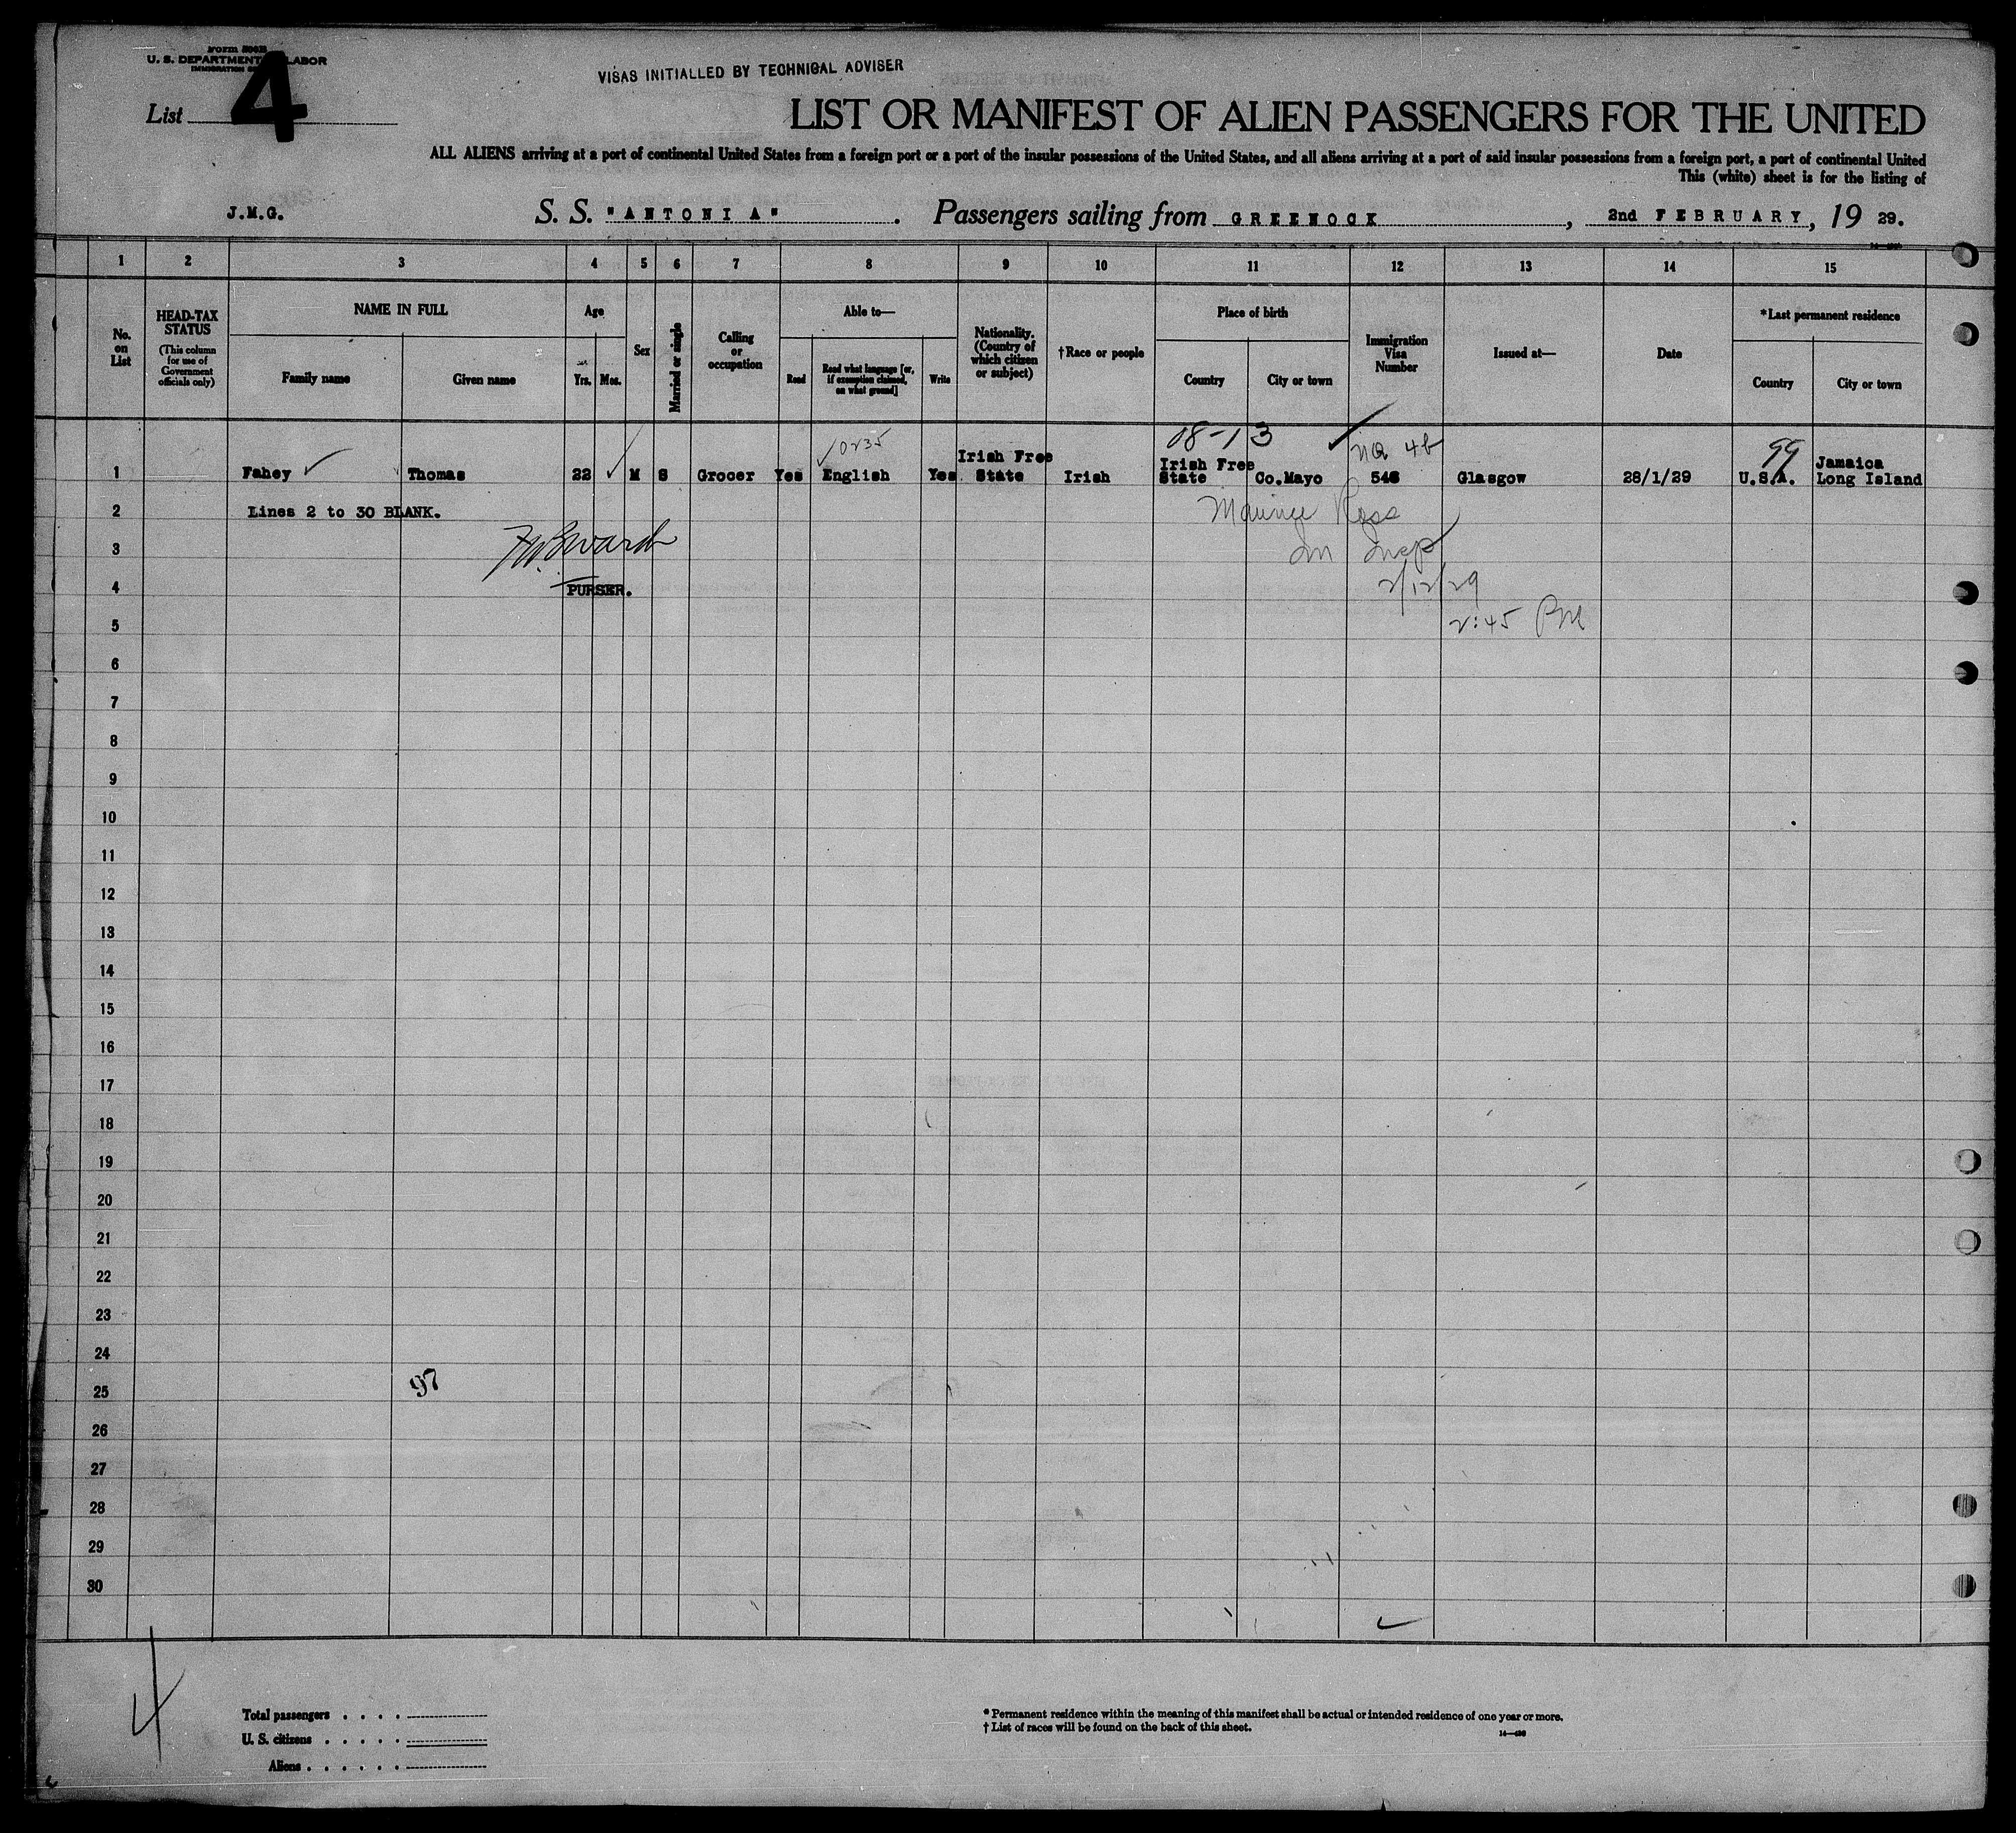 Form 500B
U. S. DEPARTMENT LABOR
List 4
VISAS INITIALLED BY TECHNICAL ADVISER
LIST OR MANIFEST OF ALIEN PASSENGERS FOR THE UNITED
ALL ALIENS arriving at a port of continental United States from a foreign port or a port of the insular possessions of the United States, and all aliens arriving at a port of said insular possessions from a foreign port, a port of continental United
This (white) sheet is for the listing of
J.M.G. S. S. "ANTONIA". Passengers sailing from GREENOCK, 2nd FEBRUARY, 19 29.
1 2 3 4 5 6 7 8 9 10 11 12 13 14 15
No. on List
HEAD-TAX STATUS (This column for use of Government officials only)
NAME IN FULL
Family name Given name
Age
Yrs. Mos.
Sex
Married or single
Calling or occupation
Able to—
Read Read what language [or, if exemption claimed, on what ground] Write
Nationality. (Country of which citizen or subject)
†Race or people
Place of birth
Country City or town
Immigration Visa Number
Issued at—
Date
*Last permanent residence
Country City or town
0235 08-13 NQ 4b 99
1 Fahey Thomas 22 M S Grocer Yes English Yes Irish Free State Irish Irish Free State Co.Mayo 546 Glasgow 28/1/29 U.S.A. Jamaica Long Island
2 Lines 2 to 30 BLANK. Maurice Ross
3 Im Insp
4 PURSER. 2/12/29
5 2:45 PM
6
7
8
9
10
11
12
13
14
15
16
17
18
19
20
21
22
23
24
25 97
26
27
28
29
30
4
Total passengers . . . .
U. S. citizens . . . . .
Aliens . . . . . .
* Permanent residence within the meaning of this manifest shall be actual or intended residence of one year or more.
† List of races will be found on the back of this sheet.